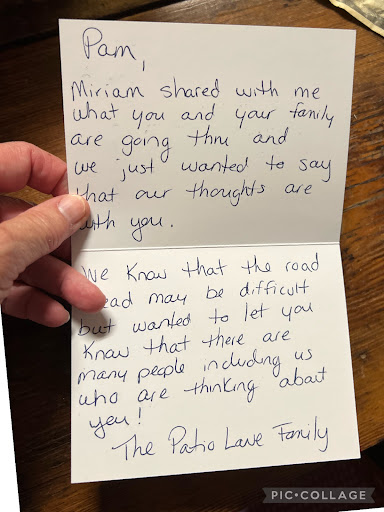 Pam,
Miriam shared with me
what you and your family
are going thru and
we just wanted to say
that our thoughts are
with you.
We know that the road
ahead may be difficult
but wanted to let you
know that there are
many people including us
who are thinking about
you!
The Patio Lane Family
PIC•COLLAGE